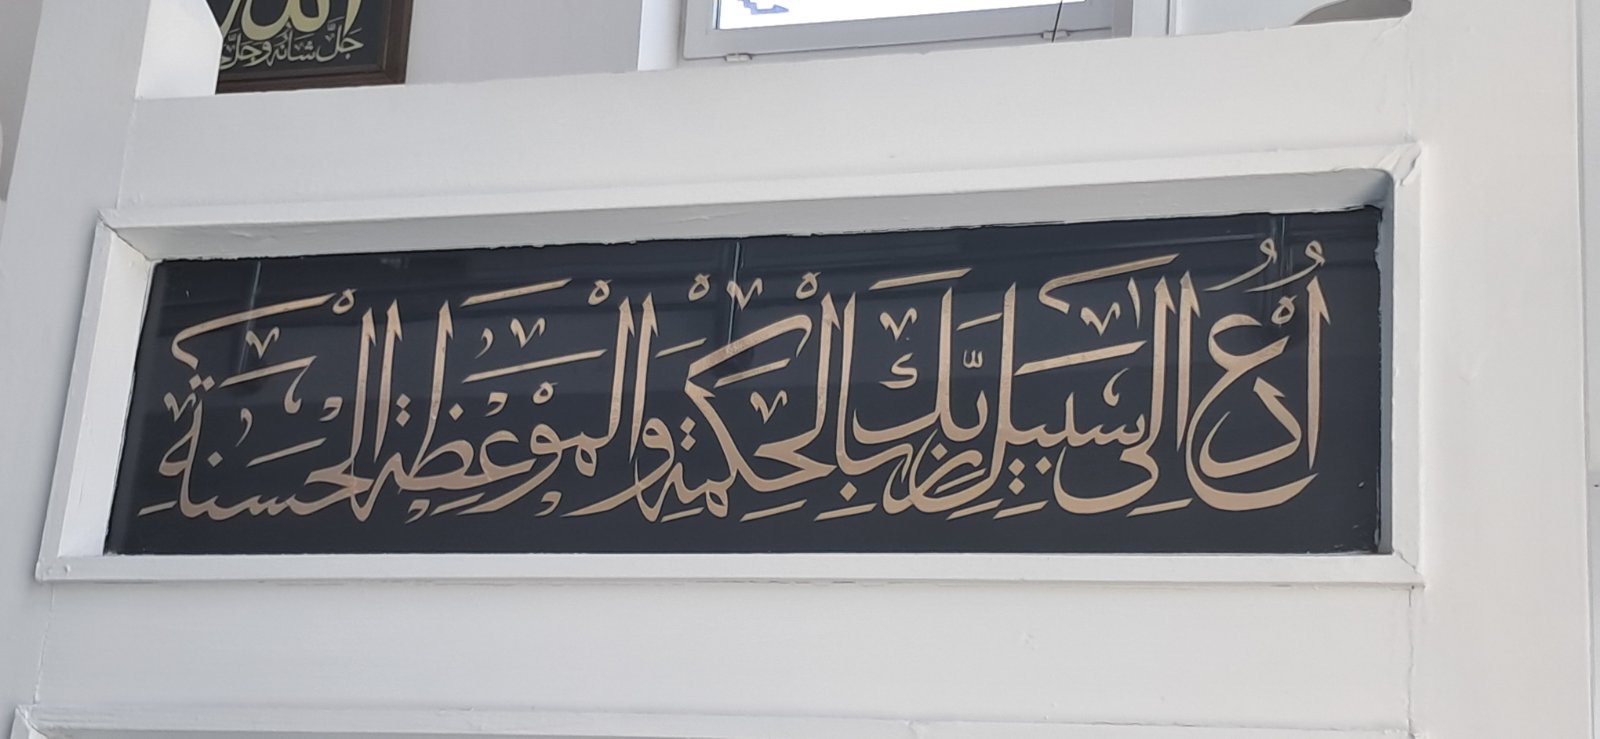 الله
جَلَّ شَانُهُ وَجَلَّ
اُدْعُ اِلٰى سَبٖيلِ رَبِّكَ بِالْحِكْمَةِ وَالْمَوْعِظَةِ الْحَسَنَةِ